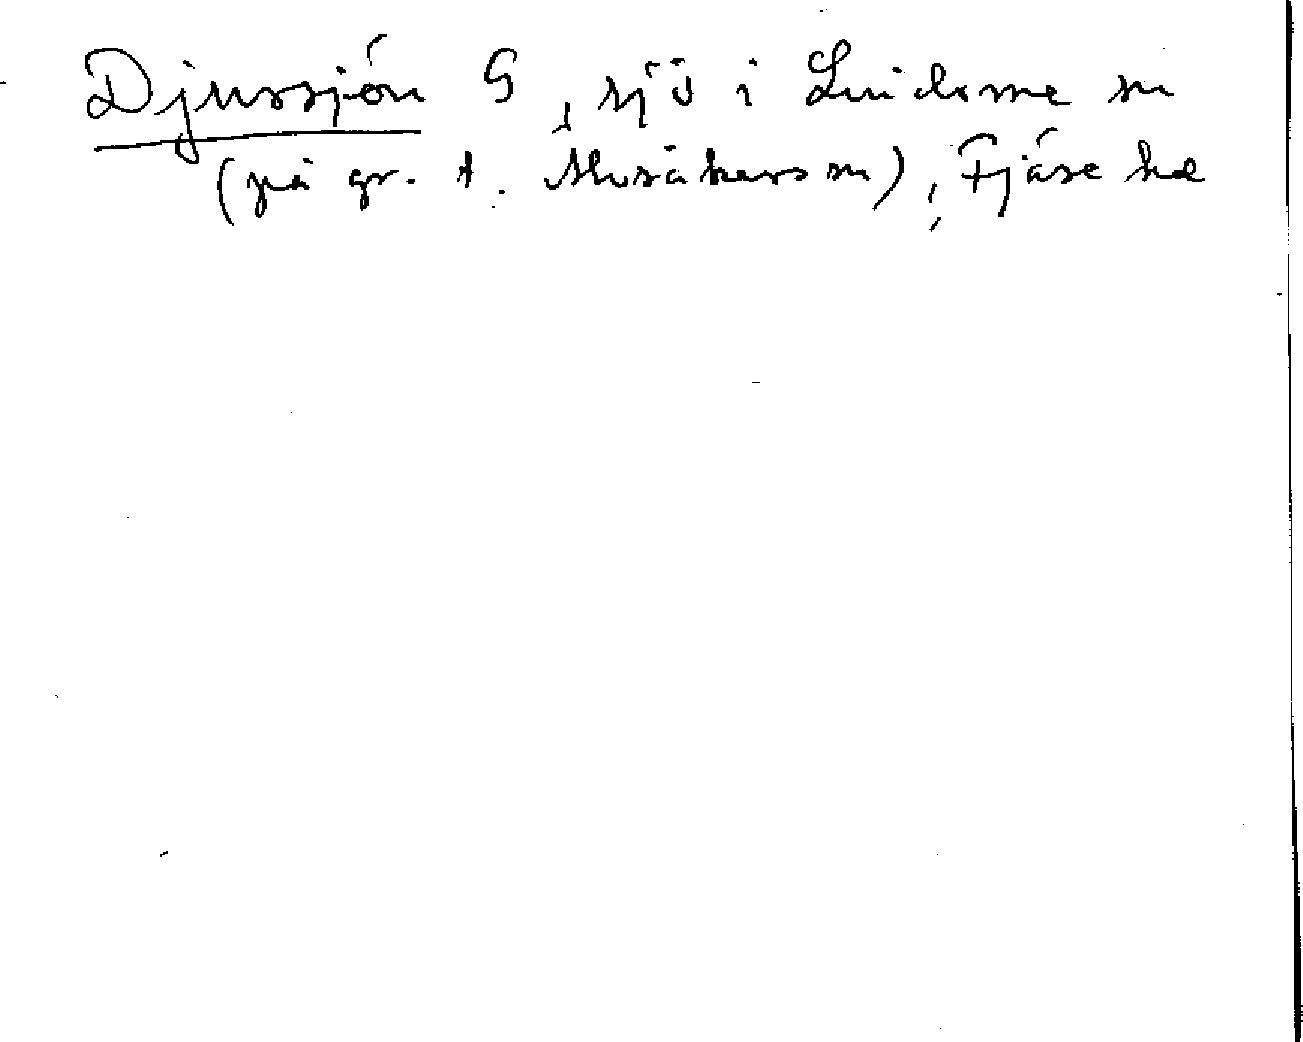 Djursjön G, sjö i Lindome sn
(på gr. t. Älvsåkers sn), Fjäre hd